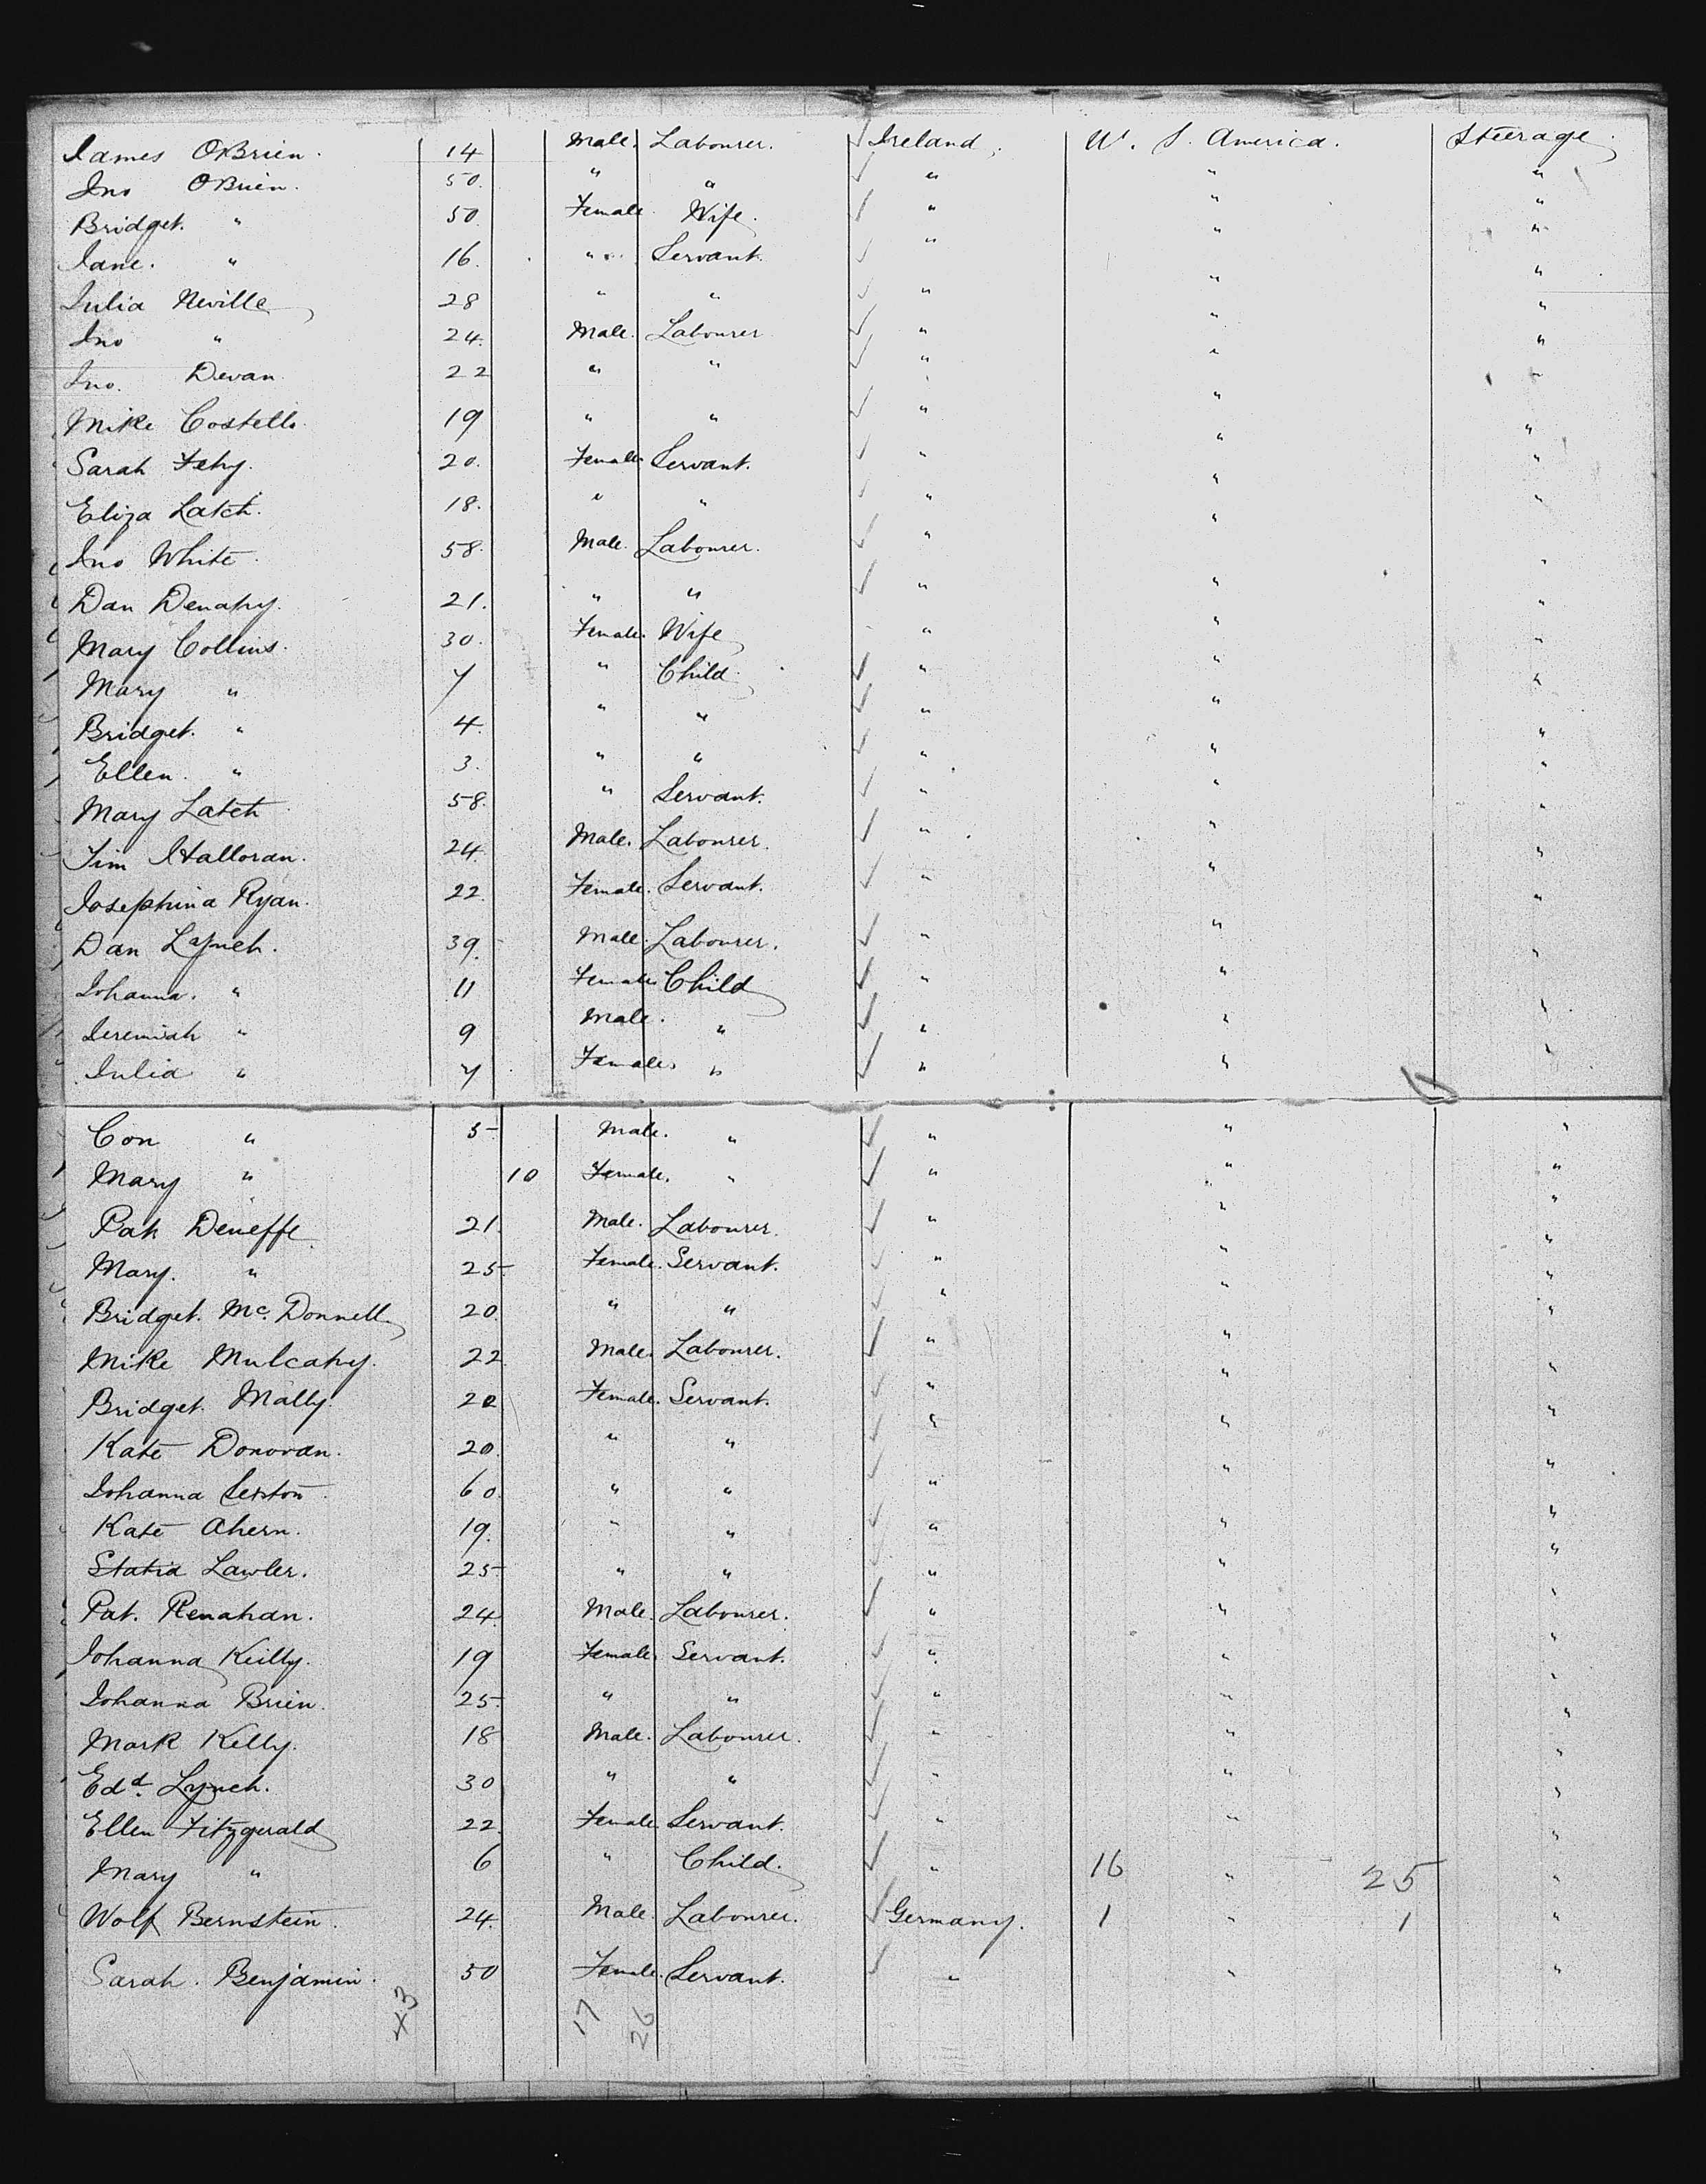 James OBrien. 14 Male. Labourer. Ireland. U. S. America. Steerage
Jno OBrien. 50. " " " " "
Bridget. " 50 Female. Wife. " " "
Jane. " 16. " Servant. " " "
Julia Neville 28 " " " " "
Jno " 24. Male. Labourer " " "
Jno. Devan 22 " " " " "
Mike Costello. 19 " " " " "
Sarah Fehy. 20. Female Servant. " " "
Eliza Latch. 18. " " " " "
Jno White. 58. Male. Labourer. " " "
Dan Denahy. 21. " " " " "
Mary Collins. 30. Female. Wife " " "
Mary " 7 " Child. " " "
Bridget. " 4. " " " " "
Ellen. " 3. " " " " "
Mary Latch 58. " Servant. " " "
Tim Halloran. 24. Male. Labourer. " " "
Josephina Ryan. 22. Female. Servant. " " "
Dan Lynch. 39. Male. Labourer. " " "
Johanna. " 11 Female Child " " "
Jeremiah " 9 Male. " " " "
Julia " 7 Female. " " " "
Con " 5 Male. " " " "
Mary " 10 Female. " " " "
Pat Deneffe. 21. Male. Labourer. " " "
Mary. " 25. Female. Servant. " " "
Bridget. Mc. Donnell 20. " " " " "
Mike Mulcahy. 22. Male. Labourer. " " "
Bridget. Mally. 20 Female. Servant. " " "
Kate Donovan. 20. " " " " "
Johanna Sexton. 60. " " " " "
Kate Ahern. 19. " " " " "
Statia Lawler. 25 " " " " "
Pat. Renahan. 24. Male. Labourer. " " "
Johanna Keilly. 19 Female. Servant. " " "
Johanna Brien. 25. " " " " "
Mark Kelly. 18 Male. Labourer. " " "
Edd. Lynch. 30 " " " " "
Ellen Fitzgerald 22. Female. Servant. " " "
Mary " 6 " Child. " 16 " 25 "
Wolf Bernstein. 24. Male. Labourer. Germany. 1 " 1 "
Sarah. Benjamin. 50 Female. Servant. " " "
+3 17 26